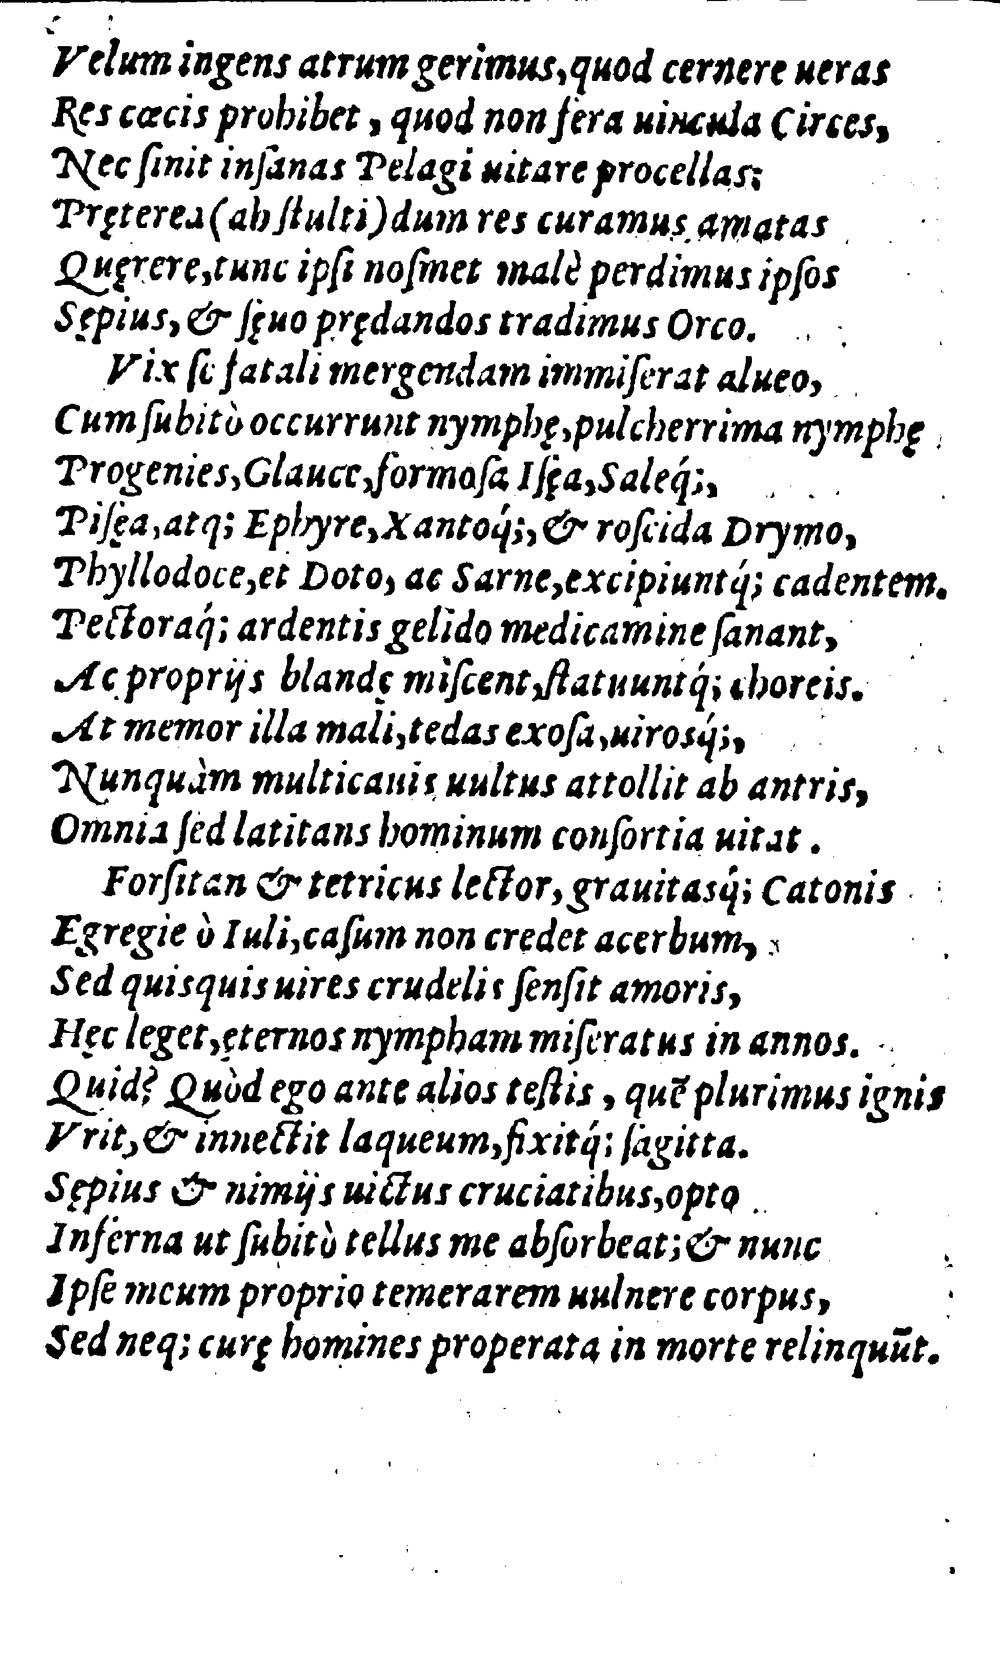 Velum ingens atrum gerimus, quod cernere ueras
Res cœcis prohibet, quod non fera uincula Circes,
Nec ſinit inſanas Pelagi uitare procellas;
Pręterea (ah ſtulti) dum res curamus amatas
Quęrere, tunc ipſi noſmet malè perdimus ipſos
Sępius, & ſęuo prędandos tradimus Orco.
Vix ſe fatali mergendam immiſerat alueo,
Cum ſubitò occurrunt nymphę, pulcherrima nymphę
Progenies, Glauce, formoſa Iſęa, Saleq́;,
Piſęa, atq; Ephyre, Xantoq́;, & roſcida Drymo,
Phyllodoce, et Doto, ac Sarne, excipiuntq́; cadentem.
Pectoraq́; ardentis gelido medicamine ſanant,
Ac proprijs blandę miſcent, ſtatuuntq́; choreis.
At memor illa mali, tedas exoſa, uirosq́;,
Nunquàm multicauis uultus attollit ab antris,
Omnia ſed latitans hominum conſortia uitat.
Forſitan & tetricus lector, grauitasq́; Catonis
Egregie ò Iuli, caſum non credet acerbum,
Sed quisquis uires crudelis ſenſit amoris,
Hęc leget, ęternos nympham miſeratus in annos.
Quid? Quòd ego ante alios teſtis, quē plurimus ignis
Vrit, & innectit laqueum, fixitq́; ſagitta.
Sępius & nimijs uictus cruciatibus, opto
Inferna ut ſubitò tellus me abſorbeat; & nunc
Ipſe meum proprio temerarem uulnere corpus,
Sed neq; curę homines properata in morte relinquūt.